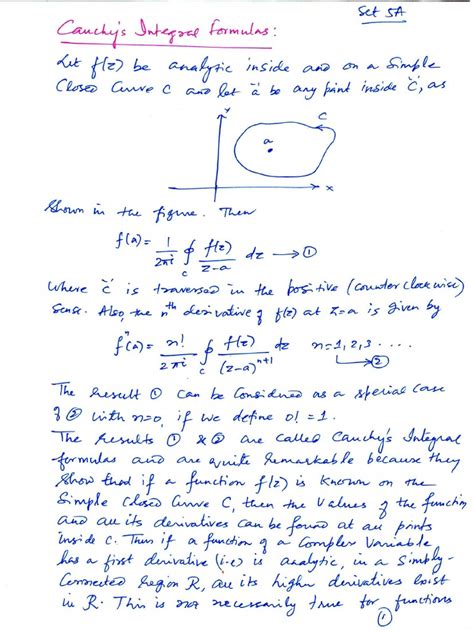 Set 5A
Cauchy's Integral formulas:
Let f(z) be analytic inside and on a Simple
Closed Curve C and let 'a' be any point inside 'C', as
Y
C
a
X
Shown in the figure. Then
f(a) = 1/2πi ∮c f(z)/(z-a) dz → ①
Where 'c' is traversed in the positive (counter clockwise)
Sense. Also, the nth derivative of f(z) at z=a is given by
fⁿ(a) = n!/2πi ∮c f(z)/(z-a)ⁿ⁺¹ dz n=1,2,3 ....
→ ②
The result ① can be Considered as a special case
of ② with n=0, if we define 0! = 1.
The results ① & ② are called Cauchy's Integral
formulas and are quite remarkable because they
Show that if a function f(z) is known on the
Simple closed Curve C, then the values of the function
and all its derivatives can be found at all points
inside C. Thus if a function of a Complex Variable
has a first derivative (i-e) is analytic, in a Simply-
Connected region R, all its higher derivatives exist
in R. This is not necessarily true for functions
①